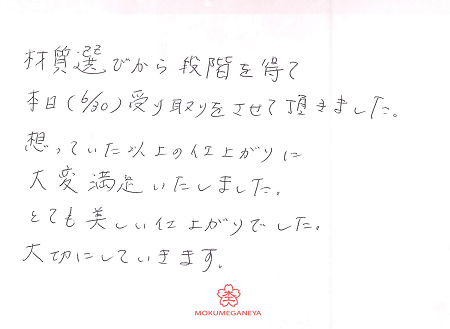 材質選びから段階を得て
本日(6/30)受け取りをさせて頂きました。
想っていた以上の仕上がりに
大変満足いたしました。
とても美しい仕上がりでした。
大切にしていきます。
MOKUMEGANEYA